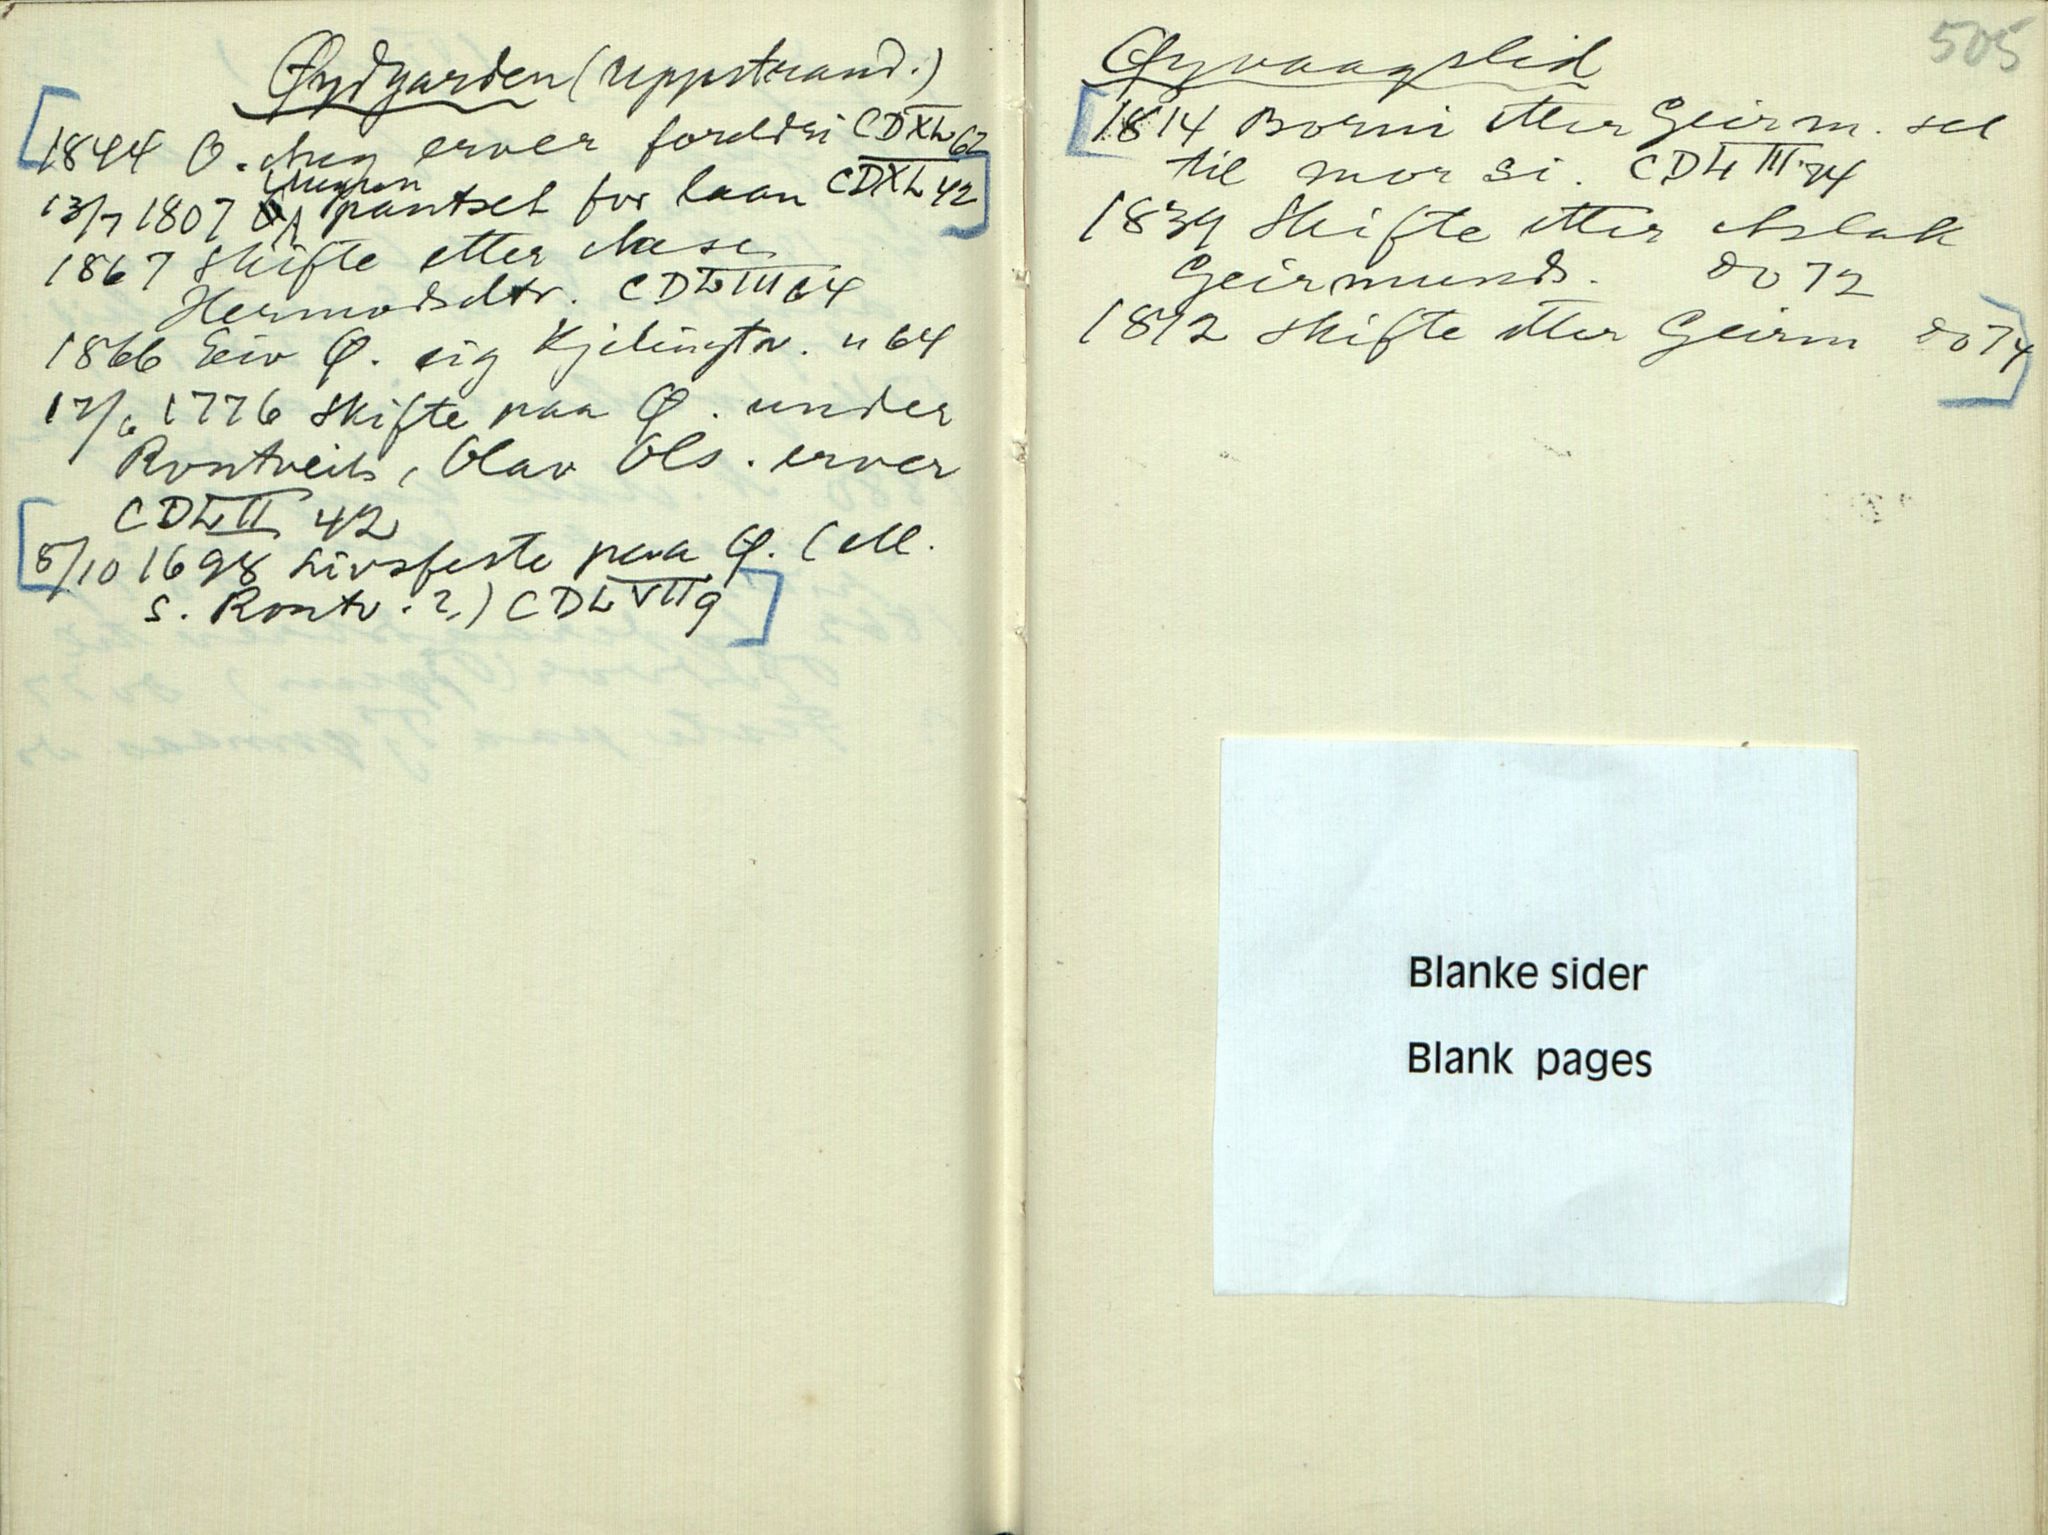 Øydgarden (Uppstrand.)
1844 O. Aug erver foreldri CDXL 62
13/7 1807 pantset for laan CDXL 42
1867 Skifte etter Aase
Hermodsdtr. CDLIII 64
1866 Eiv Ø. eig Kjilingtv. " 64
17/6 1776 Skifte paa Ø. under
Rontveit, Olav Ols. erver
CDLII 42
8/10 1698 Livsfeste paa Ø. (M.
s. Rontv. ?) CDLVII 9
505
Øyvaagslid
1814 Borni etter Geirm. sel
til mor si. CDLIII 74
1839 Skifte etter Aslak
Geirmunds. do 72
1812 Skifte etter Geirm do 74
Blanke sider
Blank pages